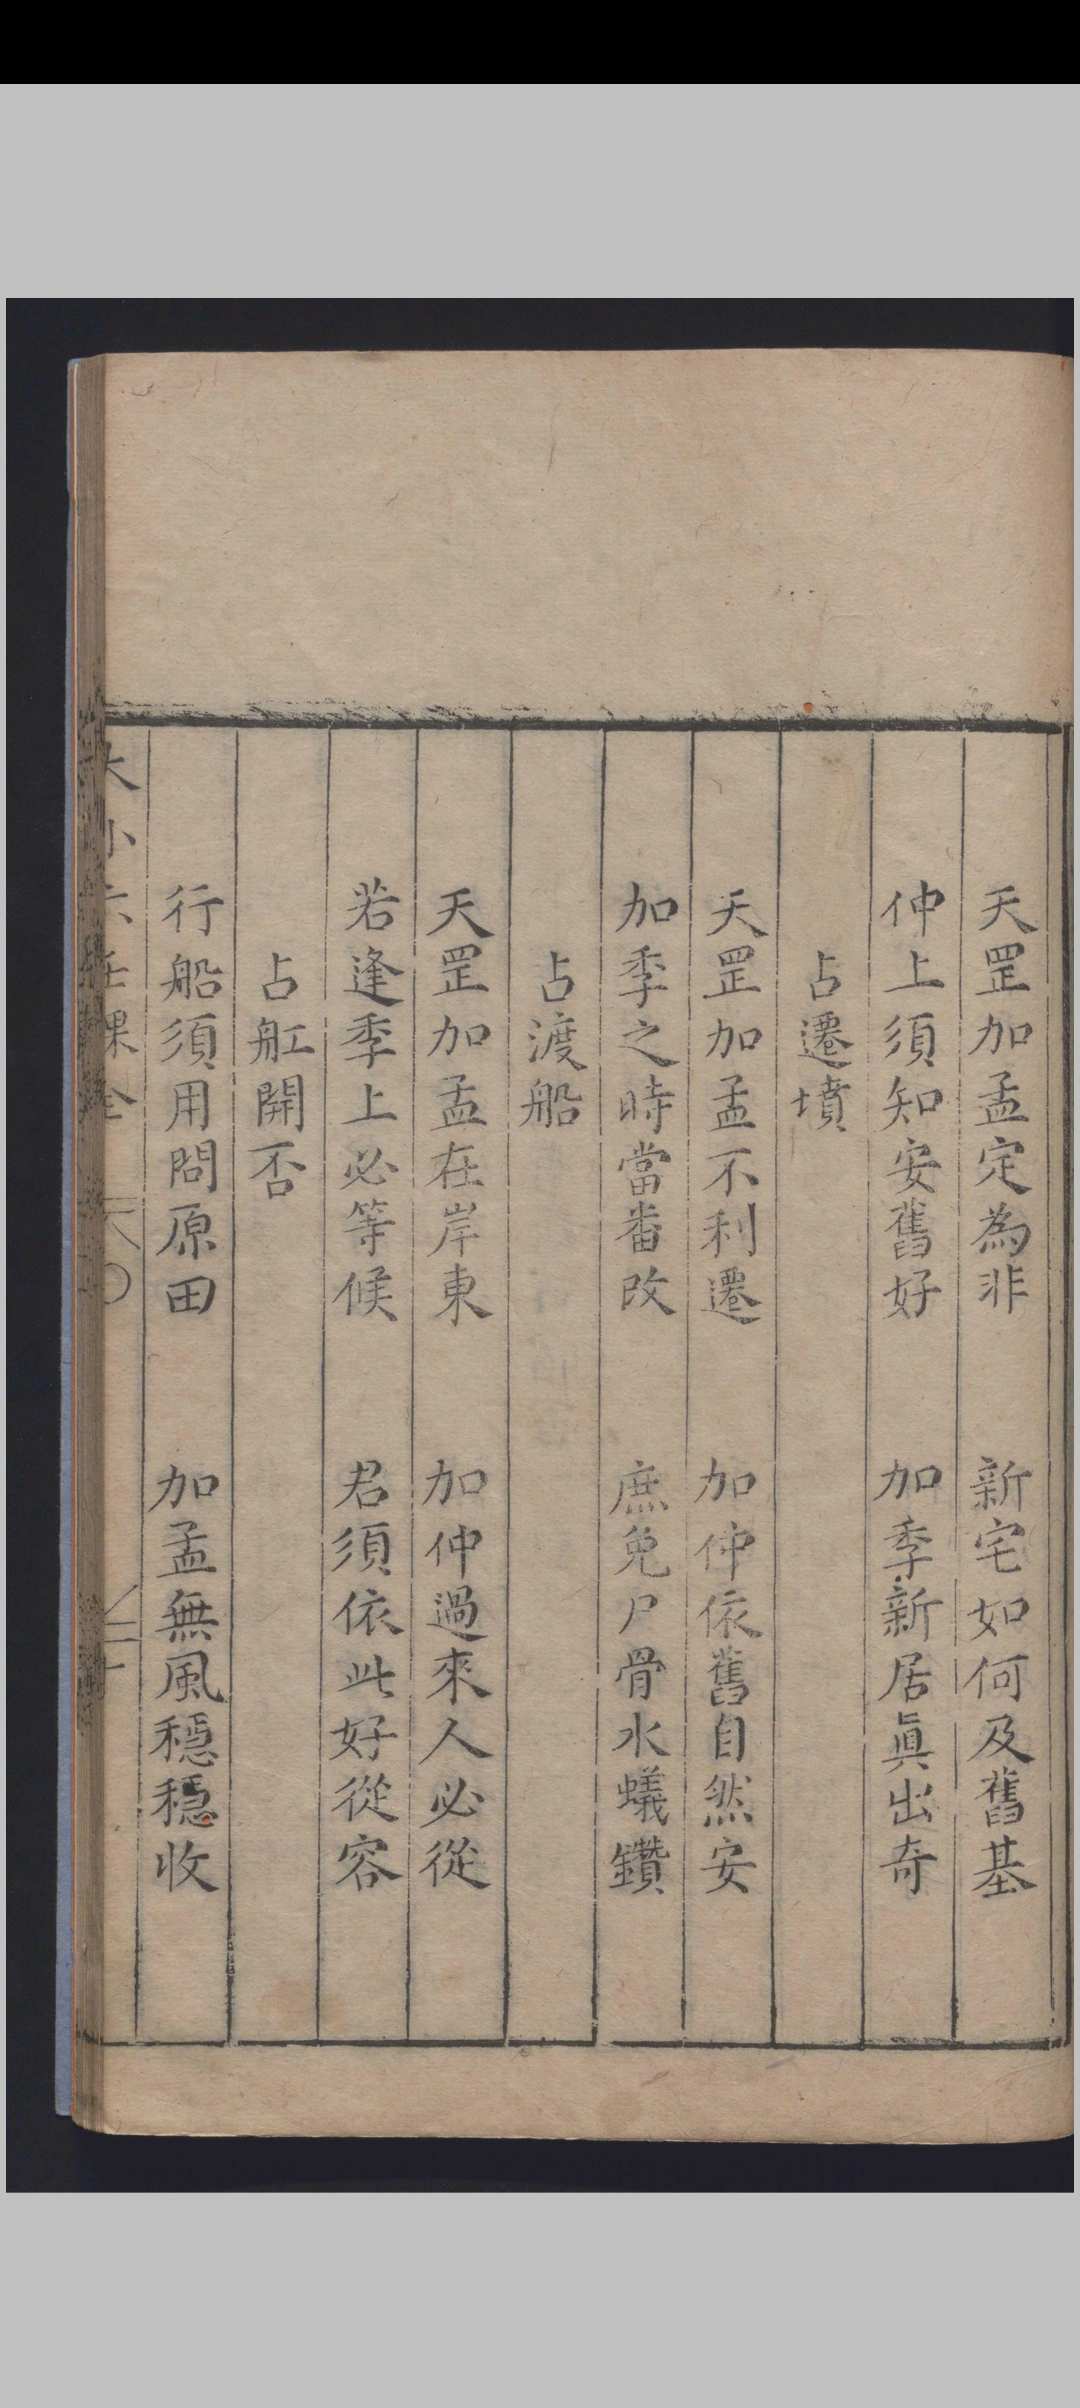 天罡加孟定為非　新宅如何及舊基
仲上須知安舊好　加季新居眞出奇
占遷墳
天罡加孟不利遷　加仲依舊自然安
加季之時當番改　庶免尸骨水蟻鑽
占渡船
天罡加孟在岸東　加仲過來人必從
若逢季上必等候　君須依此好從容
占舡開否
行船須用問原田　加孟無風穩穩收
大小六壬課全